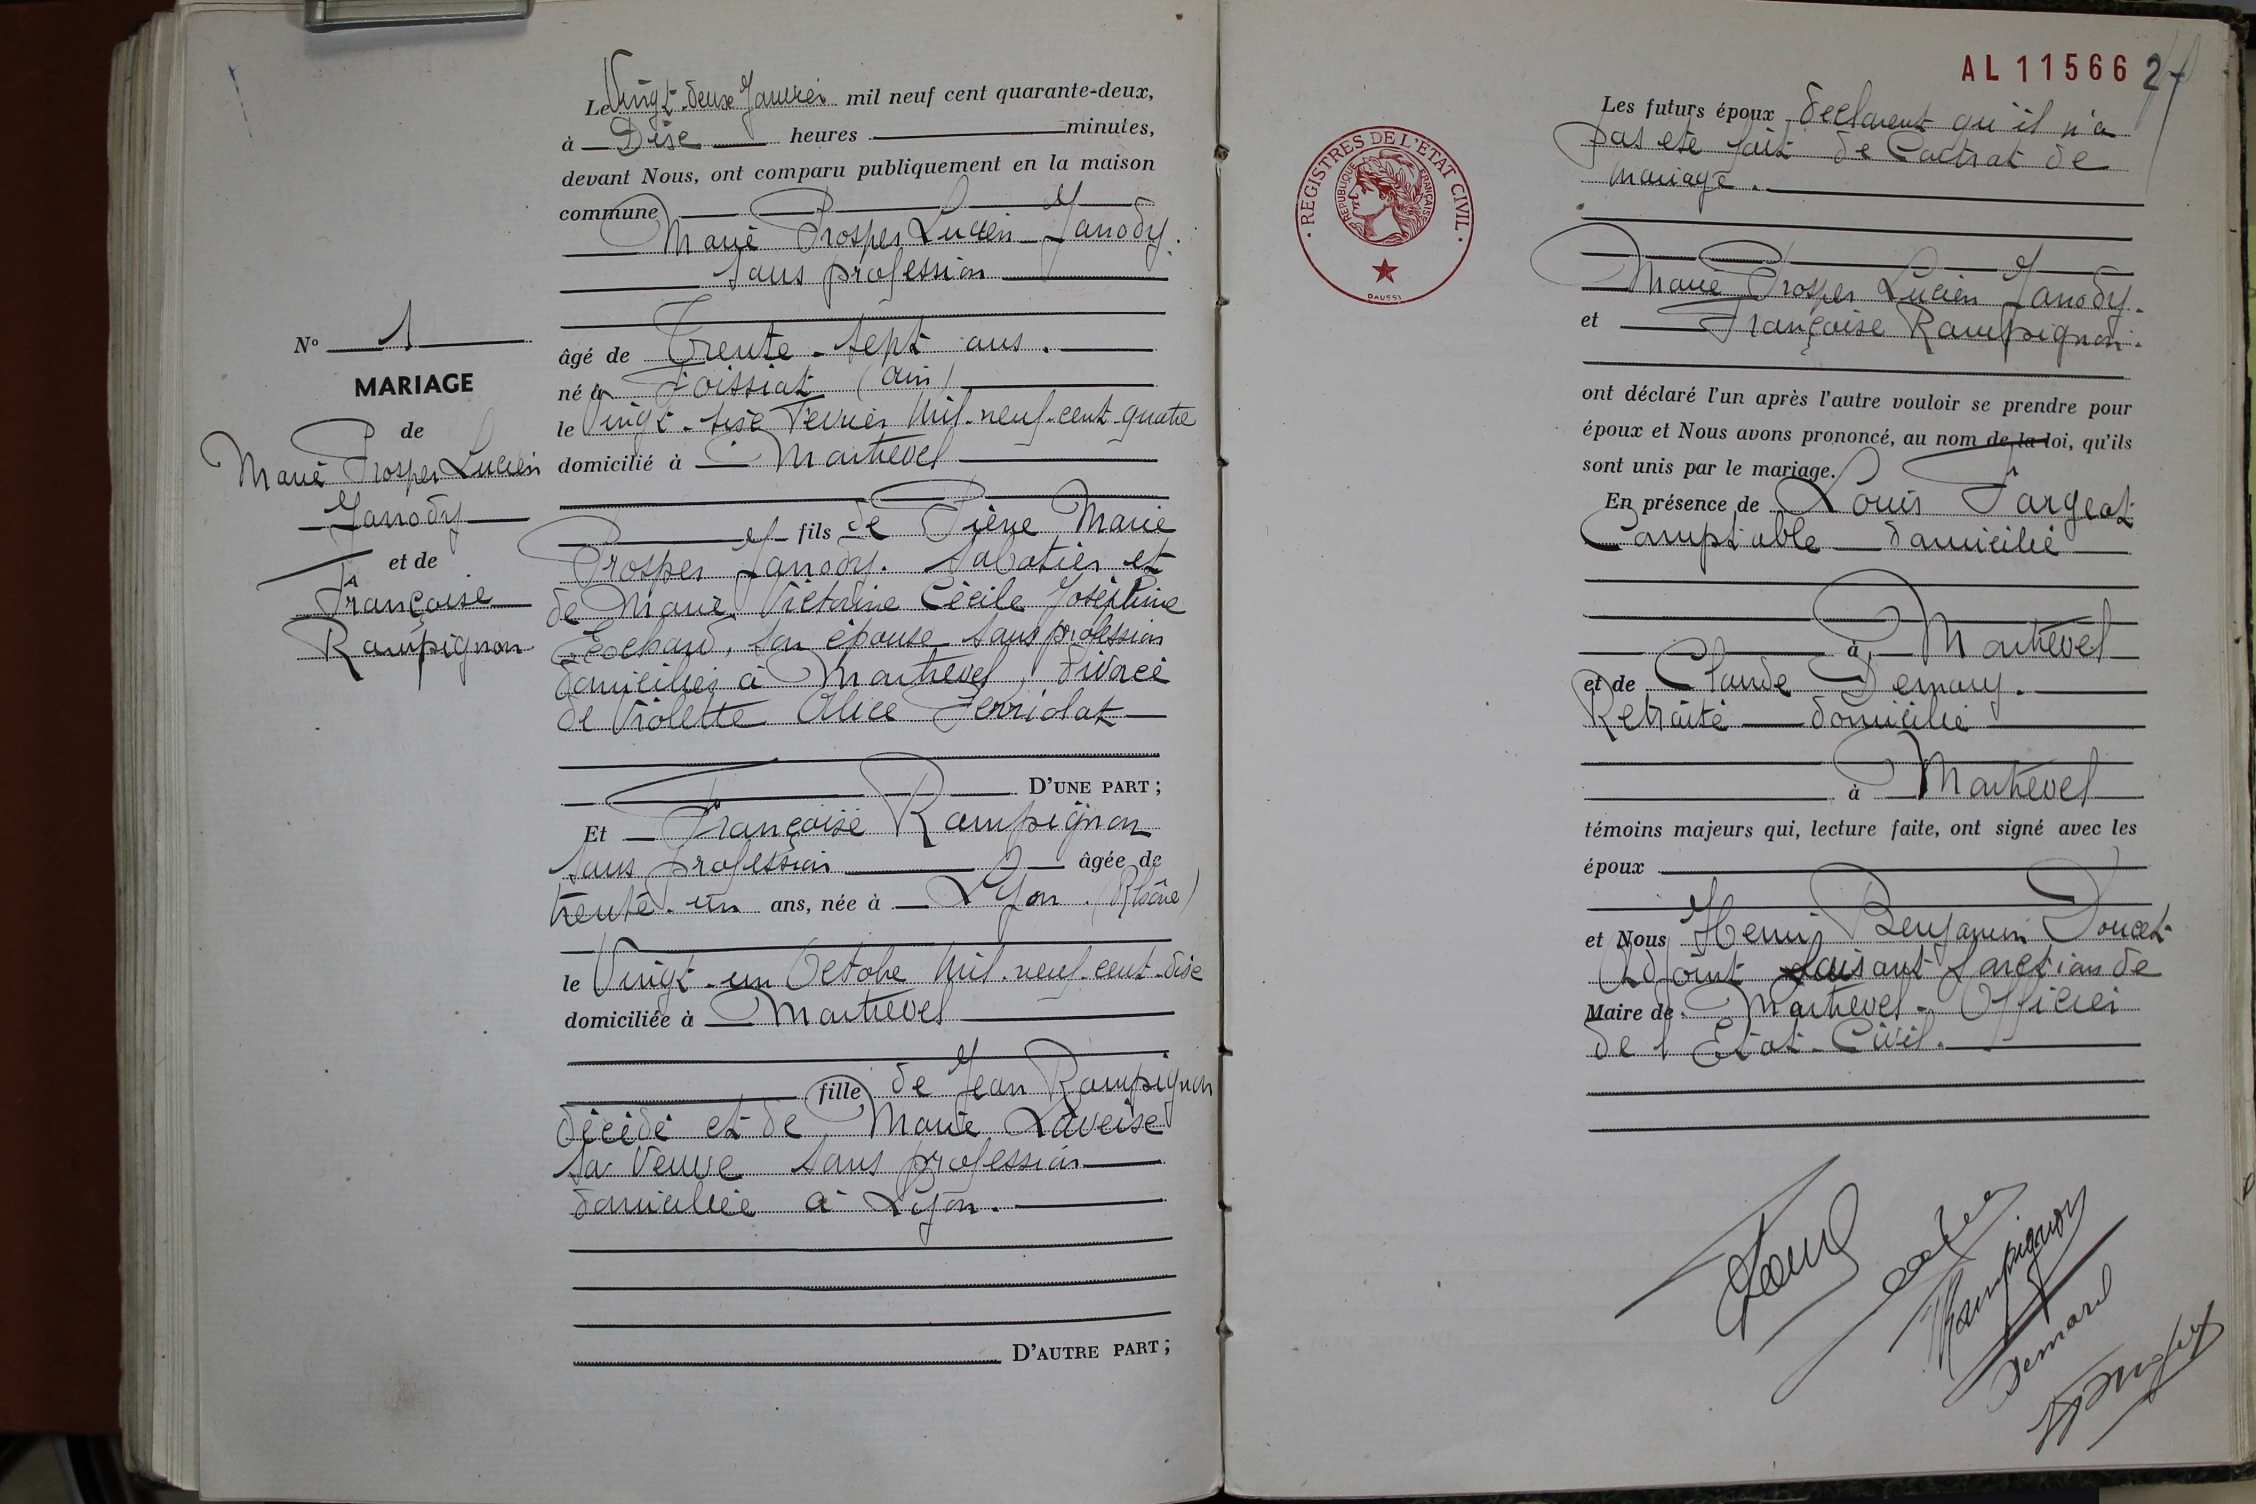 Le Vingt-deux Janvier mil neuf cent quarante-deux,
à Dise heures minutes,
devant Nous, ont comparu publiquement en la maison
commune
Marie Prosper Lucien Janody.
sans profession
N° 1
MARIAGE
de
Marie Prosper Lucien
Janody
et de
Françoise
Rampignon
âgé de Trente-sept ans.
né à Foissiat (Ain)
le Vingt-sise Fevrier Mil-neuf-cent-quatre
domicilié à Montrevel
fils de Pierre Marie
Prosper Janody. Sabatier et
de Marie Victorine Cécile Joséphine
son épouse sans profession
domiciliés à Montrevel, divorcé
de Violette Alice Ferriolat
D'UNE PART ;
Et Françoise Rampignon
sans profession âgée de
trente-un ans, née à Lyon. (Rhône)
le Vingt-un Octobre Mil-neuf-cent-dise
domiciliée à Montrevel
fille de Jean Rampignon
décédé et de Marie Laveise
sa veuve sans profession
domiciliée à Lyon.
D'AUTRE PART ;
AL 11566 2
REGISTRES DE L'ETAT CIVIL
REPUBLIQUE FRANÇAISE
DAUSSI
Les futurs époux declarent qu'il n'a
pas ete fait de Cotrat de
mariage.
Marie Prosper Lucien Janody.
et Françoise Rampignon.
ont déclaré l'un après l'autre vouloir se prendre pour
époux et Nous avons prononcé, au nom de la loi, qu'ils
sont unis par le mariage.
En présence de Louis Fargeot
Comptable domicilié
à Montrevel
et de Claude
Retraité domicilié
à Montrevel
témoins majeurs qui, lecture faite, ont signé avec les
époux
et Nous Henri Benjamin Doucet
Adjoint faisant fonction de
Maire de Montrevel-Officier
de l'Etat-Civil.
Rampignon